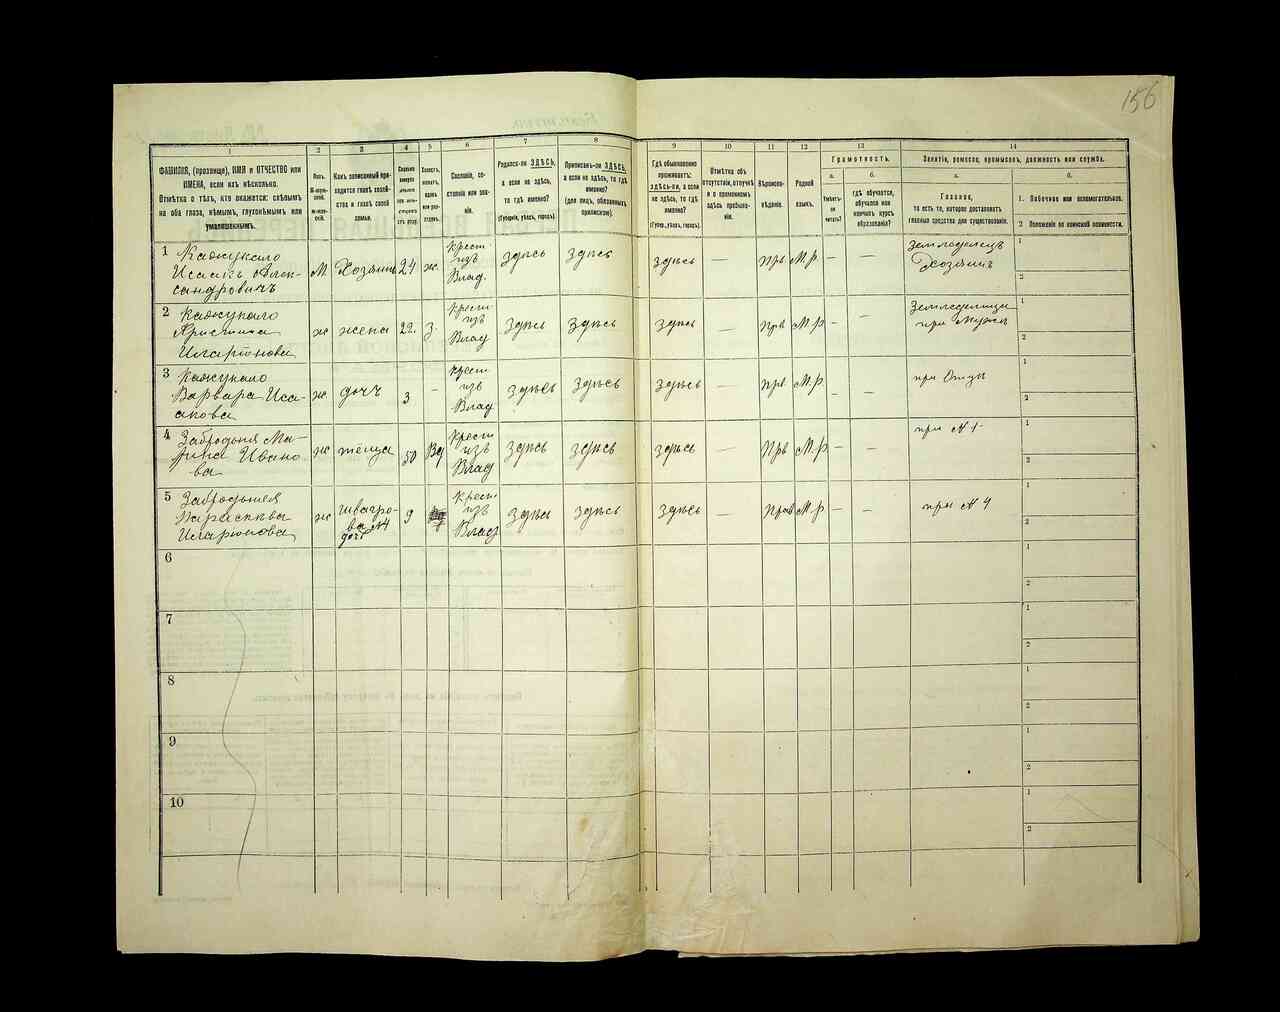 156
1 2 3 4 5 6 7 8 9 10 11 12 13 14
ФАМИЛІЯ, (прозвище), ИМЯ и ОТЧЕСТВО или
ИМЕНА, если ихъ нѣсколько.
Отмѣтка о тѣхъ, кто окажется: слѣпымъ
на оба глаза, нѣмымъ, глухонѣмымъ или
умалишеннымъ.
Полъ.
Какъ записанный при-
ходится главѣ хозяй-
ства и главѣ своей
семьи.
Сословіе, со-
стояніе или зва-
ніе.
Родился-ли ЗДѢСЬ,
а если не здѣсь,
то гдѣ именно?
(Губернія, уѣздъ, городъ).
Приписанъ-ли ЗДѢСЬ,
а если не здѣсь, то гдѣ
именно?
(Для лицъ, обязанныхъ
припискою).
Гдѣ обыкновенно
проживаетъ:
здѣсь-ли, а если
не здѣсь, то гдѣ
именно?
(Губер., уѣздъ, городъ).
Отмѣтка объ
отсутствіи, отлучкѣ
и о временномъ
здѣсь пребыва-
ніи.
Вѣроиспо-
вѣданіе.
Родной
языкъ.
Грамотность.
а. б.
Умѣетъ-
ли
читать?
гдѣ обучается,
обучался или
кончилъ курсъ
образованія?
Занятіе, ремесло, промыселъ, должность или служба.
а. б.
Главное,
то есть то, которое доставляетъ
главныя средства для существованія.
1. Побочное или вспомогательное.
2 Положеніе по воинской повинности.
1 Исаакъ Алек-
сандровичъ
М Хозяинъ 24 ж. Крест. изъ Влад. здѣсь здѣсь здѣсь — Прв М.р. — — Земледѣлецъ Хозяинъ
1
2
2
Иларіонова
ж жена 22. З. Крест. изъ Влад здѣсь здѣсь здѣсь — Прв М.р — — при Мужѣ
1
2
3
Варвара Иса-
акова
ж дочь 3 – Крест изъ Влад здѣсь здѣсь здѣсь — Прв М.р. – – при Отцѣ
1
2
4 Забродыня Ма-
рина Ивано
ва
ж тёща 50 Вд Крест изъ Влад здѣсь здѣсь здѣсь — Прв М.р — – при № 1
1
2
5
Параскѣва
Иларіонова
ж 9 Крест изъ Влад здѣсь здѣсь здѣсь — Прав М.р – – при № 4
1
2
6
1
2
7
1
2
8
1
2
9
1
2
10
1
2